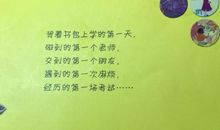 背着书包上学的第一天，
碰到的第一个老师，
交到的第一个朋友，
遇到的第一次麻烦，
经历的第一场考试……